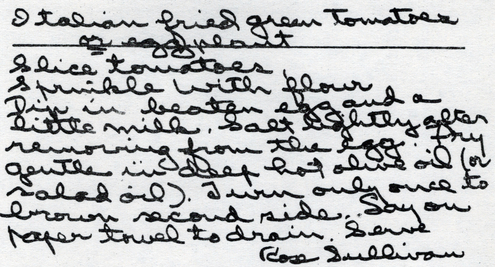 Italian fried green Tomatoes
or egg plant
Slice tomatoes
Sprinkle with flour
Dip in beaten egg and a
little milk. Salt lightly after
removing from the egg. Fry
gentle in deep hot olive oil (or
salad oil). Turn only once to
brown second side. Lay on
paper towel to drain. Serve
Rose Sullivan